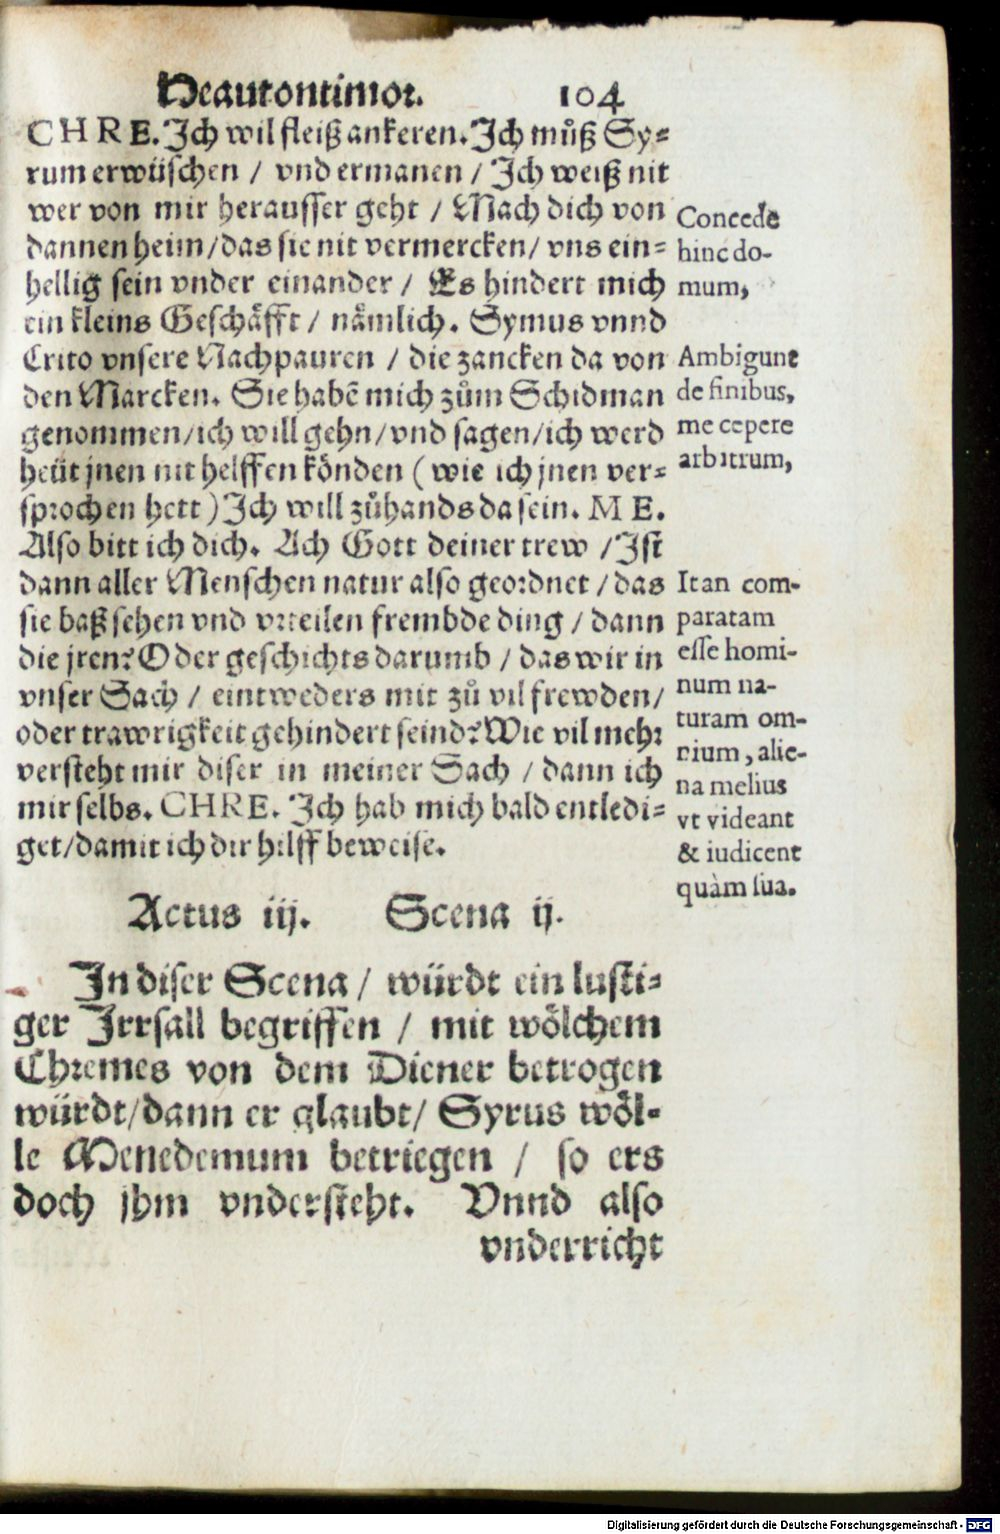 Heautontimor. 104
CHRE. Ich wil fleiß ankeren. Ich můß Sy⸗
rum erwüschen / vnd ermanen / Ich weiß nit
wer von mir herausser geht / Mach dich von
dannen heim/das sie nit vermercken/ vns ein⸗
hellig sein vnder einander / Es hindert mich
ein kleins Geschäfft / nämlich. Symus vnnd
Crito vnsere Nachpauren / die zancken da von
den Marcken. Sie habẽ mich zům Schidman
genommen/ich will gehn/vnd sagen/ich werd
heüt jnen nit helffen könden (wie ich jnen ver⸗
sprochen hett) Ich will zůhands da sein. M E.
Also bitt ich dich. Ach Gott deiner trew / Ist
dann aller Menschen natur also geordnet / das
sie baß sehen vnd vrteilen frembde ding / dann
die jren? Oder geschichts darumb / das wir in
vnser Sach / eintweders mit zů vil frewden/
oder trawrigkeit gehindert seind? Wie vil mehr
versteht mir diser in meiner Sach / dann ich
mir selbs. CHRE. Ich hab mich bald entledi⸗
get/damit ich dir hilff beweise.
Concede
hinc do-
mum,
Ambigunt
de finibus,
me cepere
arbitrum,
Itan com-
paratam
esse homi-
num na-
turam om-
nium, alie-
na melius
vt videant
& iudicent
quàm sua.
Actus iij. Scena ij.
In diser Scena / würdt ein lusti⸗
ger Irrsall begriffen / mit wölchem
Chremes von dem Diener betrogen
würdt/dann er glaubt/ Syrus wöl⸗
le Menedemum betriegen / so ers
doch jhm vndersteht. Vnnd also
vnderricht
Digitalisierung gefördert durch die Deutsche Forschungsgemeinschaft - DFG